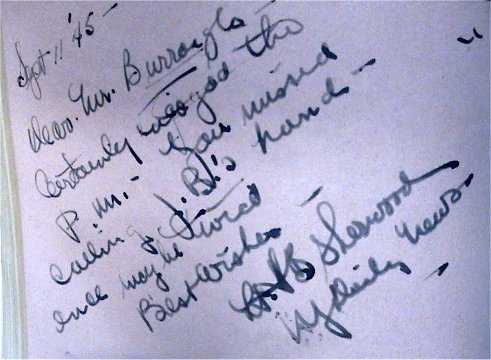 Sept 11 '45 -
Dear Mr. Burroughs -
Certainly enjoyed the
P.M. - You missed
calling J.B.'s hand -
once maybe twice -
Best wishes -
Sherwood
NY Daily News -